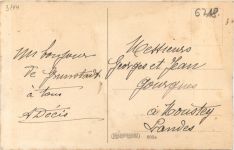 3/14
6218
Un bonjour
de Grunstadt
à tous
A Décis
Messieurs
Georges et Jean
Gourgues
à Moustey
Landes